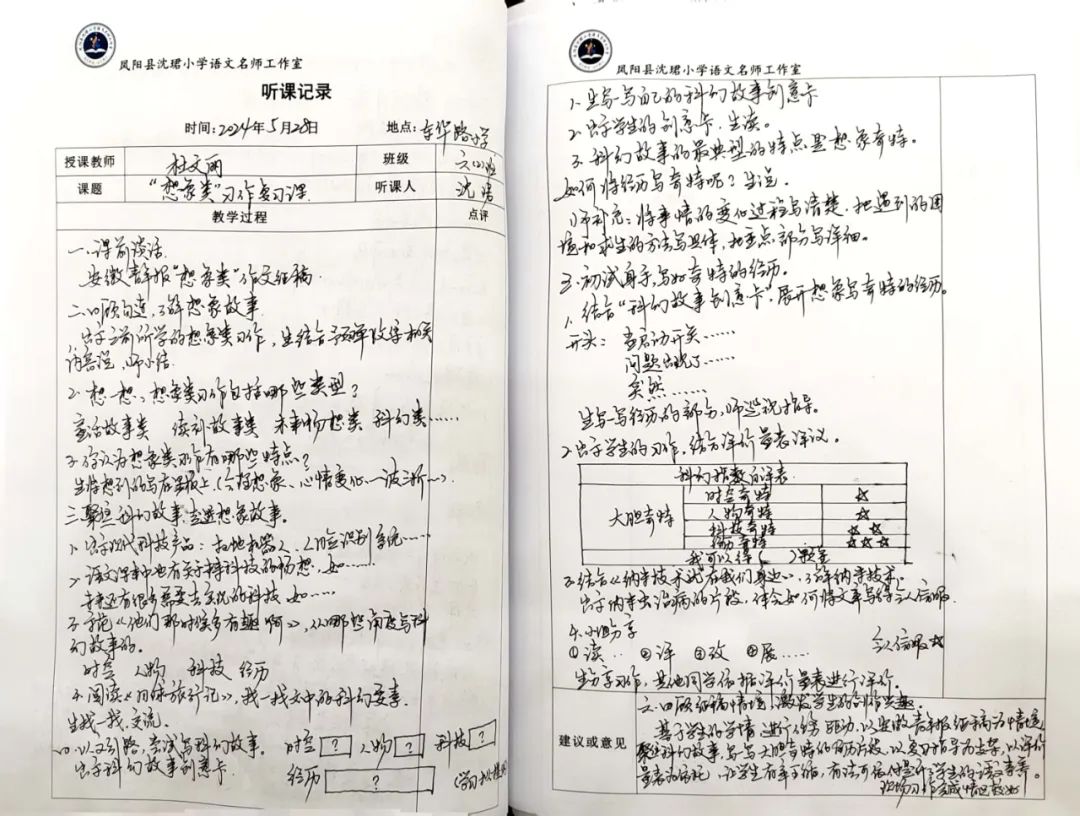 凤阳县沈珺小学语文名师工作室
听课记录
时间:2024年5月28日 地点:
授课教师 杜文丽 班级 六(2)班
课题 “想象类”习作复习课 听课人 沈
教学过程 点评
一、课前谈话
安徽青年报“想象类”作文征稿
二、回顾勾连,了解想象故事
1.出示之前所学的想象类习作,生结合预学单及学相关
内容说,师小结.
2.想一想,想象类习作包括哪些类型?
童话故事类 续创故事类 未来畅想类 科幻类……
3.你认为想象类习作有哪些特点?
生将想到的写在黑板上.(合理想象、心情变化、一波三折…).
三、聚焦科幻故事,走进想象故事。
1.出示现代科技产品:扫地机器人、人脸识别系统……
2.语文课本中也有关于科技的畅想,如……
还有很多需要去实现的科技,如……
3.《他们那时候多有趣啊》,从哪些角度写科
幻故事的.
时空 人物 科技 经历
4.阅读《月球旅行记》,找一找文中的科幻要素.
生找一找,交流.
四.以文引路,尝试写科幻故事. 时空 ? 人物 ? 科技 ?
出示科幻故事创意卡. 经历 ?
凤阳县沈珺小学语文名师工作室
1.生写一写自己的科幻故事创意卡
2.出示学生的创意卡.生读。
3.科幻故事的最典型的特点是想象奇特。
如何将经历写奇特呢?生说.
师补充:将事情的变化过程写清楚,把遇到的困
境和求生的方法写具体,把重点部分写详细。
三.初试身手,写好奇特的经历.
1.结合“科幻故事创意卡”,展开想象写奇特的经历.
开头:当启动开关……
问题出现了……
突然……
生写一写经历的部分,师巡视指导。
2.出示学生的习作,结合评价量表评议.
科幻指数自评表
大胆奇特 时空奇特 ☆
人物奇特 ☆
科技奇特 ☆☆
经历奇特 ☆☆☆
我可以得( )颗星
3.结合《纳米技术就在我们身边》,了解纳米技术.
出示纳米虫治病的片段,体会如何将文章写得令人信服.
4.小组分享 令人信服☆
①读… ②评 ③改 ④展…
生分享习作,其他同学依据评价量表进行评价.
六.回顾征稿情境,激发学生的创作兴趣.
建议或意见
基于学生的学情进行任务驱动,以安徽青年报征稿为情境
聚焦科幻故事,写写大胆奇特的经历片段,以学习指导为支架,以评价
量表为,让学生有章可循,有法可依,提升学生的语文素养。